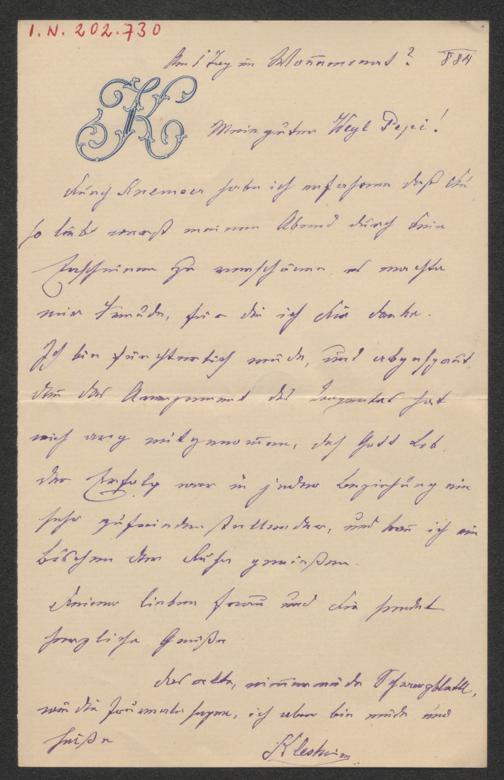 I. N. 202.730
Am 1 Tag im Wonnemonat? 884
K
Mein guter Weyl Pepi!
Durch Knemoer habe ich erfahren daß Du
so lieb warst meinen Abend durch Dein
Erscheinen zu verschönern, es machte
mir Freude, für die ich Dir danke.
Ich bin fürchterlich müde, und abgespannt.
denn das Arrangement des Ganzen hat
mich arg mitgenommen, doch Gott Lob.
der Erfolg war in jeder Beziehung ein
sehr zufrieden stellender, und kann ich ein
Bischen der Ruhe genießen.
Deiner lieben Frau und Dir sendet
herzliche Grüße
der alte, nimmermüde
wie die Journale sagen, ich aber bin müde und
heiße
Klesheim